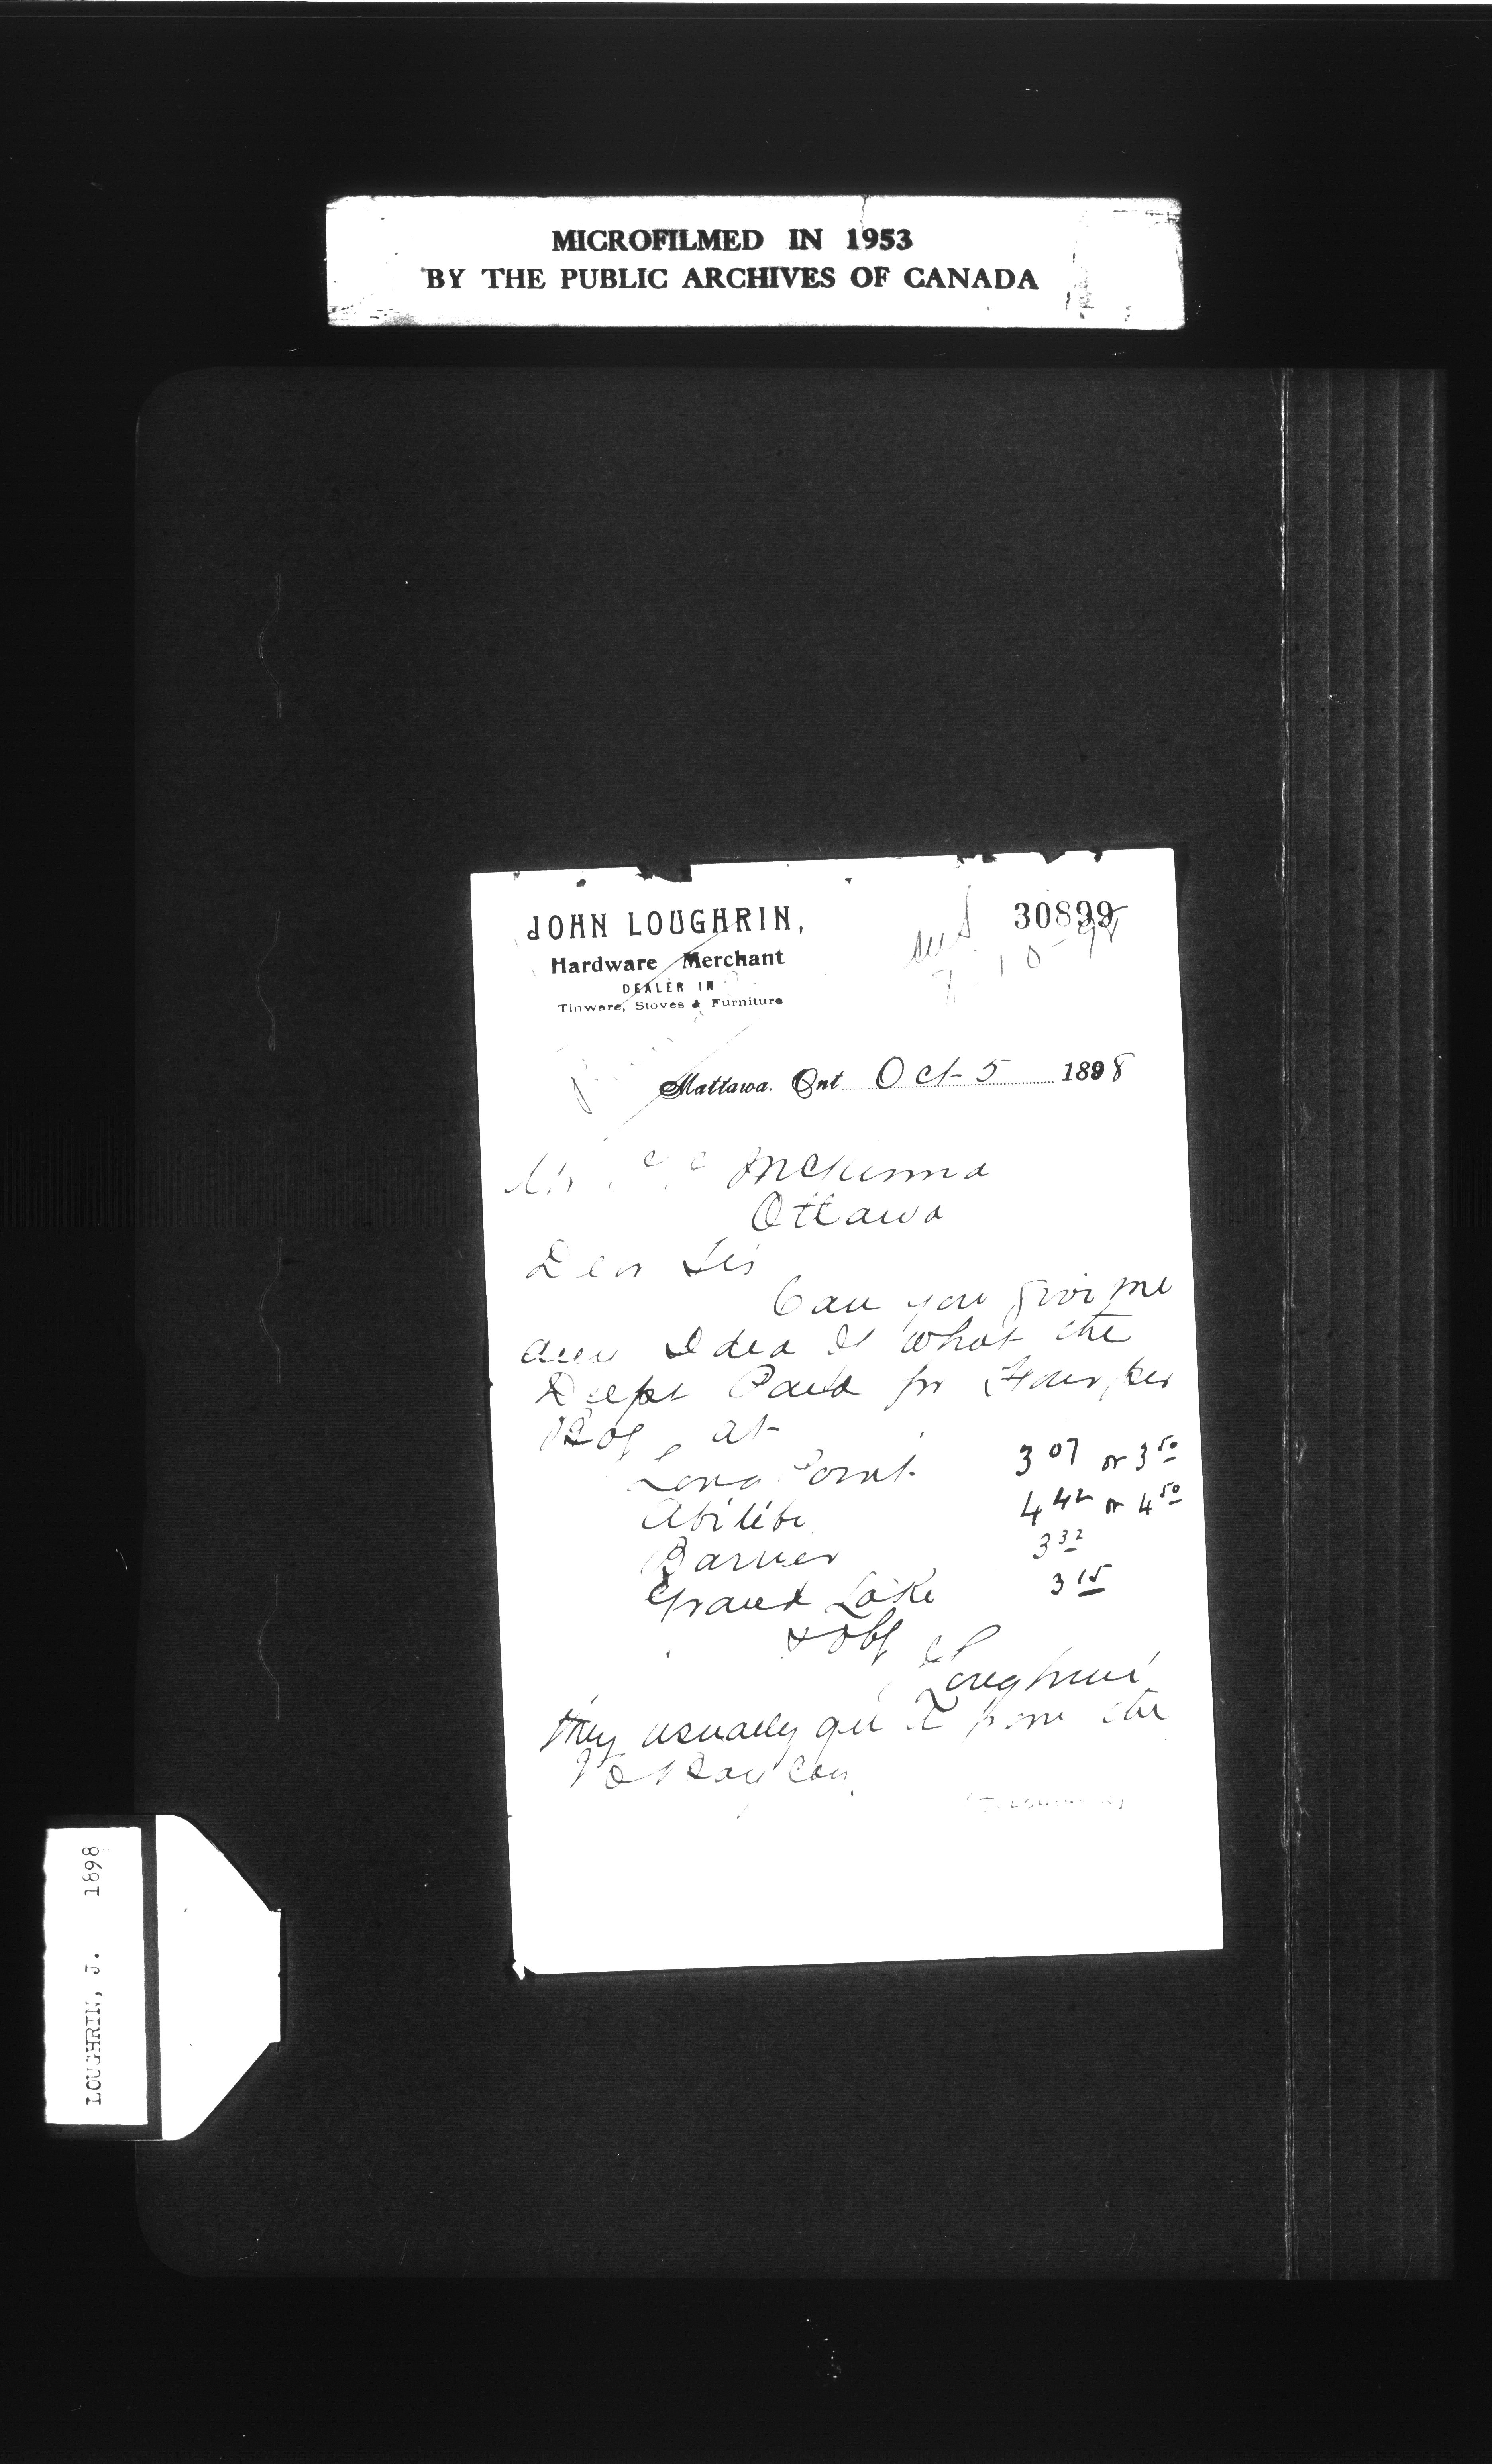 MICROFILMED IN 1953
BY THE PUBLIC ARCHIVES OF CANADA
30899
JOHN LOUGHRIN,
Hardware Merchant
DEALER IN
Tinware, Stoves & Furniture
ansd
7-10-98
Mattawa. Ont Oct 5 1898
Mr McKenna
Ottawa
Dear Sir
Can you give me
any Idea of what the
Dept Paid for Flour per
Bag at
Long Point 3 07 or 3 50
Abitibi 4 42 or 4 50
Barrier 3 32
Grand Lake 3 15
& oblg
J Loughrin
they usually get it from the
H Bay Coy
(J. LOUGHRIN)
LOUGHRIN, J. 1898